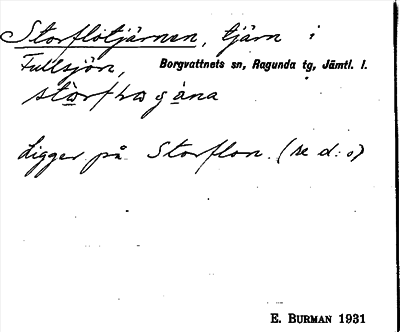 Storflötjärnen, tjärn i
Fullsjön, Borgvattnets sn, Ragunda tg, Jämtl. l.
Ligger på Storflon. (se d:o)
E. BURMAN 1931